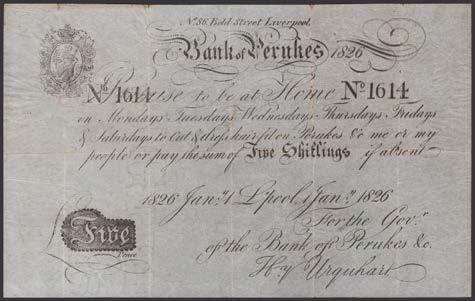 No. 56. Bold Street Liverpool.
Bank of Perukes 1826
No 1614 Promise to be at Home No 1614
on Mondays Tuesdays Wednesdays Thursdays Fridays
& Saturdays to Cut & dress hair fit on Perukes &c me or my
people or pay the sum of Five Shillings if absent
1826 Jany. 1 L'pool 1 Jany. 1826
For the Govr.
of the Bank of Perukes &c.
Five
Pence
Hy Urquhart